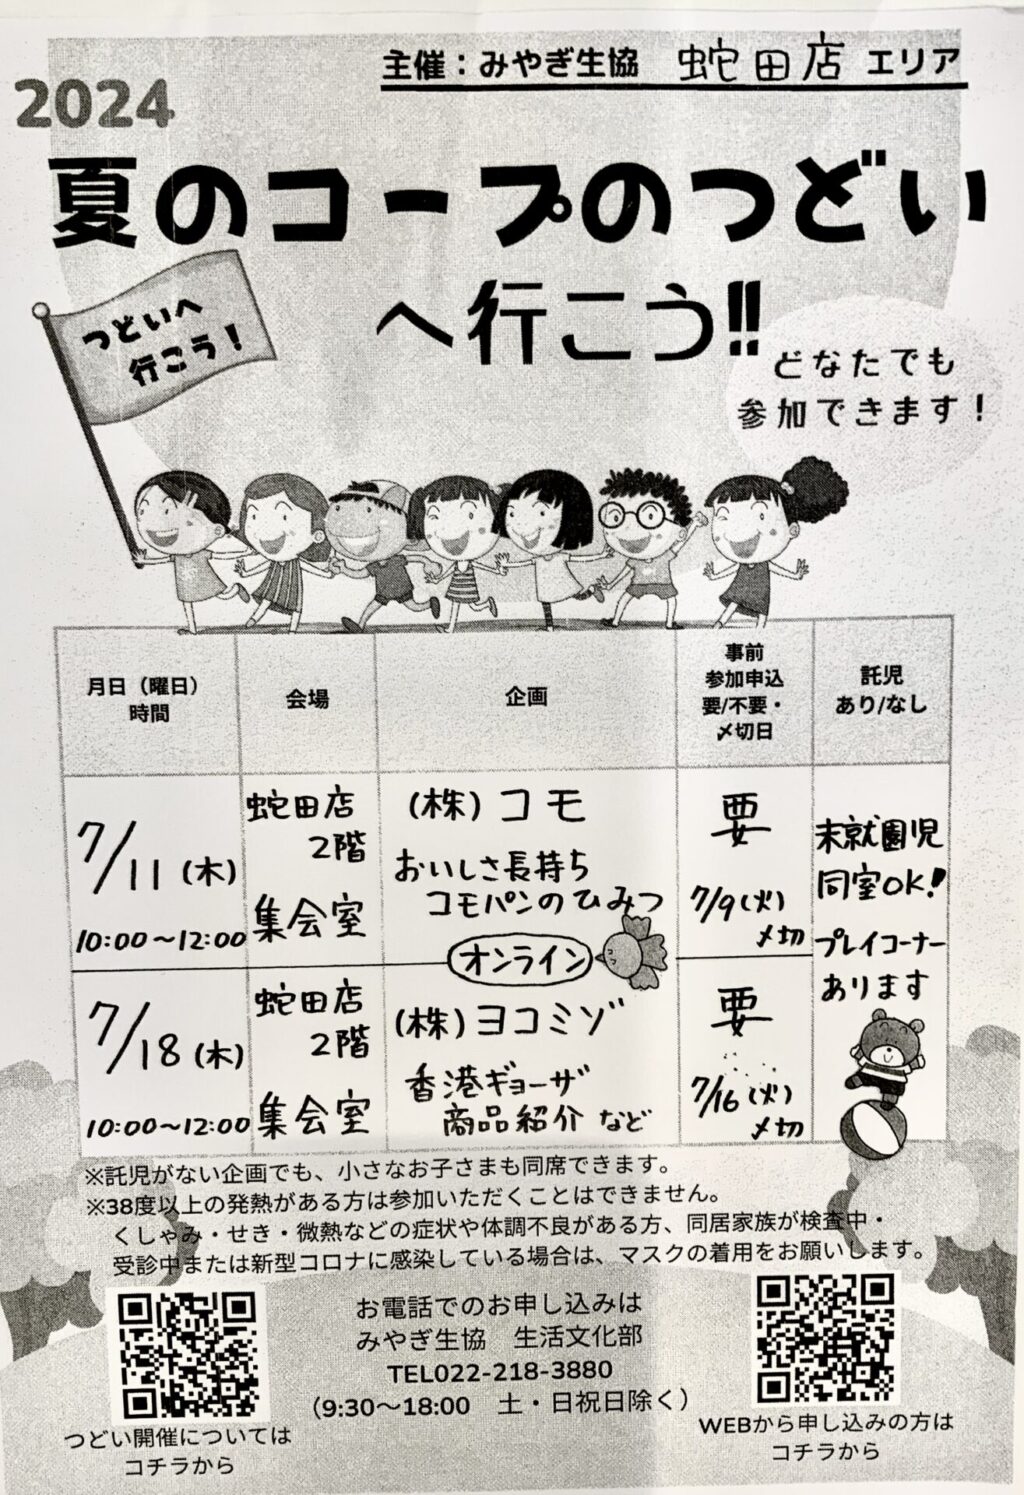 主催：みやぎ生協 蛇田店 エリア
2024
夏のコープのつどい
へ行こう!!
つどいへ
行こう！
どなたでも
参加できます！
月日（曜日）
時間
会場
企画
事前
参加申込
要/不要・
〆切日
託児
あり/なし
7/11（木）
10:00～12:00
蛇田店
2階
集会室
（株）コモ
おいしさ長持ち
コモパンのひみつ
オンライン
要
7/9（火）
〆切
末就園児
同室OK!
プレイコーナー
あります
7/18（木）
10:00～12:00
蛇田店
2階
集会室
（株）ヨコミゾ
香港ギョーザ
商品紹介 など
要
7/16（火）
〆切
※託児がない企画でも、小さなお子さまも同席できます。
※38度以上の発熱がある方は参加いただくことはできません。
くしゃみ・せき・微熱などの症状や体調不良がある方、同居家族が検査中・
受診中または新型コロナに感染している場合は、マスクの着用をお願いします。
つどい開催については
コチラから
お電話でのお申し込みは
みやぎ生協　生活文化部
TEL022-218-3880
（9:30～18:00　土・日祝日除く）
WEBから申し込みの方は
コチラから